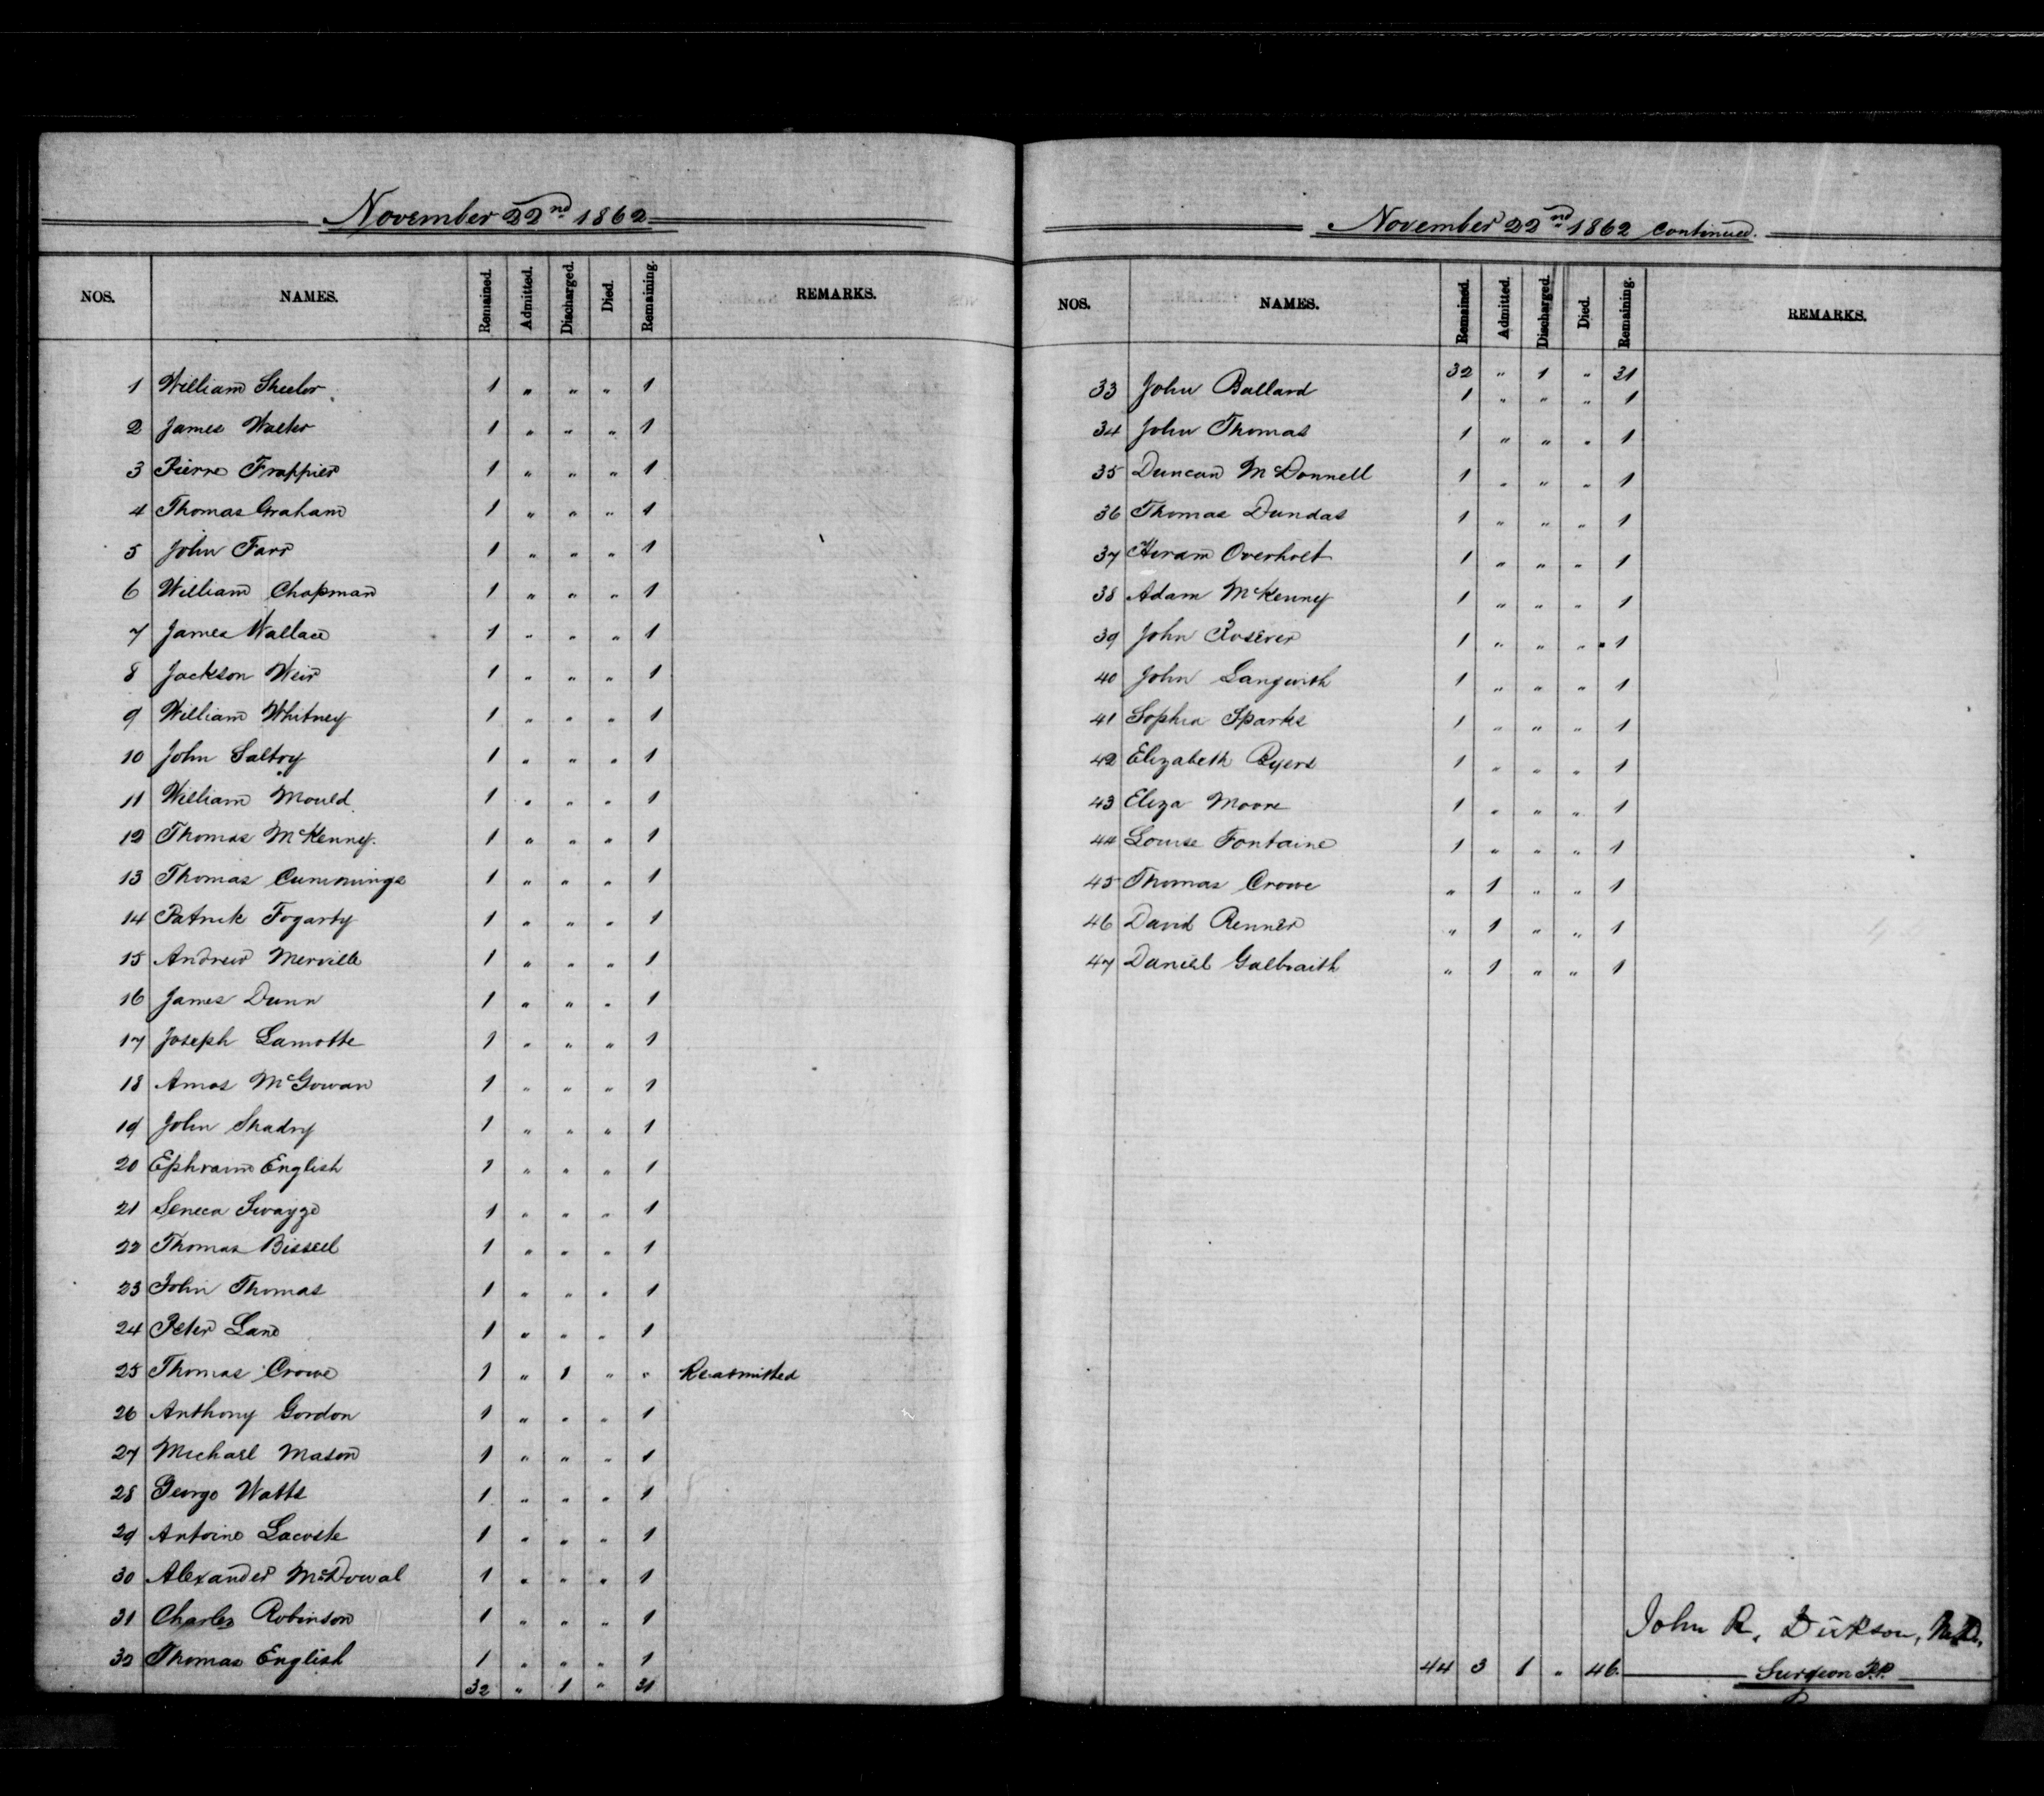 November 22nd 1862
NOS. NAMES. Remained. Admitted. Discharged. Died. Remaining. REMARKS.
1 William Sheeler 1 " " " 1
2 James Walter 1 " " " 1
3 Pierre Frappier 1 " " " 1
4 Thomas Graham 1 " " " 1
5 John Farr 1 " " " 1
6 William Chapman 1 " " " 1
7 James Wallace 1 " " " 1
8 Jackson Weir 1 " " " 1
9 William Whitney 1 " " " 1
10 John Saltry 1 " " " 1
11 William Mould 1 " " " 1
12 Thomas McKenny. 1 " " " 1
13 Thomas Cummings 1 " " " 1
14 Patrick Fogarty 1 " " " 1
15 Andrew Merville 1 " " " 1
16 James Dunn 1 " " " 1
17 Joseph Lamotte 1 " " " 1
18 Amos McGowan 1 " " " 1
19 John Shadry 1 " " " 1
20 Ephraim English 1 " " " 1
21 Seneca Swayze 1 " " " 1
22 Thomas Bissell 1 " " " 1
23 John Thomas 1 " " " 1
24 Peter Lane 1 " " " 1
25 Thomas Crowe 1 " 1 " " Readmitted
26 Anthony Gordon 1 " " " 1
27 Michael Mason 1 " " " 1
28 George Watts 1 " " " 1
29 Antoine Lacoste 1 " " " 1
30 Alexander McDowal 1 " " " 1
31 Charles Robinson 1 " " " 1
32 Thomas English 1 " " " 1
32 " 1 " 31
November 22nd 1862 continued.
NOS. NAMES. Remained. Admitted. Discharged. Died. Remaining. REMARKS.
32 " 1 " 31
33 John Ballard 1 " " " 1
34 John Thomas 1 " " " 1
35 Duncan McDonnell 1 " " " 1
36 Thomas Dundas 1 " " " 1
37 Hiram Overholt 1 " " " 1
38 Adam McKenny 1 " " " 1
39 John 1 " " " 1
40 John Langwith 1 " " " 1
41 Sophia Sparks 1 " " " 1
42 Elizabeth Byers 1 " " " 1
43 Eliza Moore 1 " " " 1
44 Louise Fontaine 1 " " " 1
45 Thomas Crowe " 1 " " 1
46 David Renner " 1 " " 1
47 Daniel Galbraith " 1 " " 1
John R. Dickson, M.D.
44 3 1 " 46. Surgeon P.P.